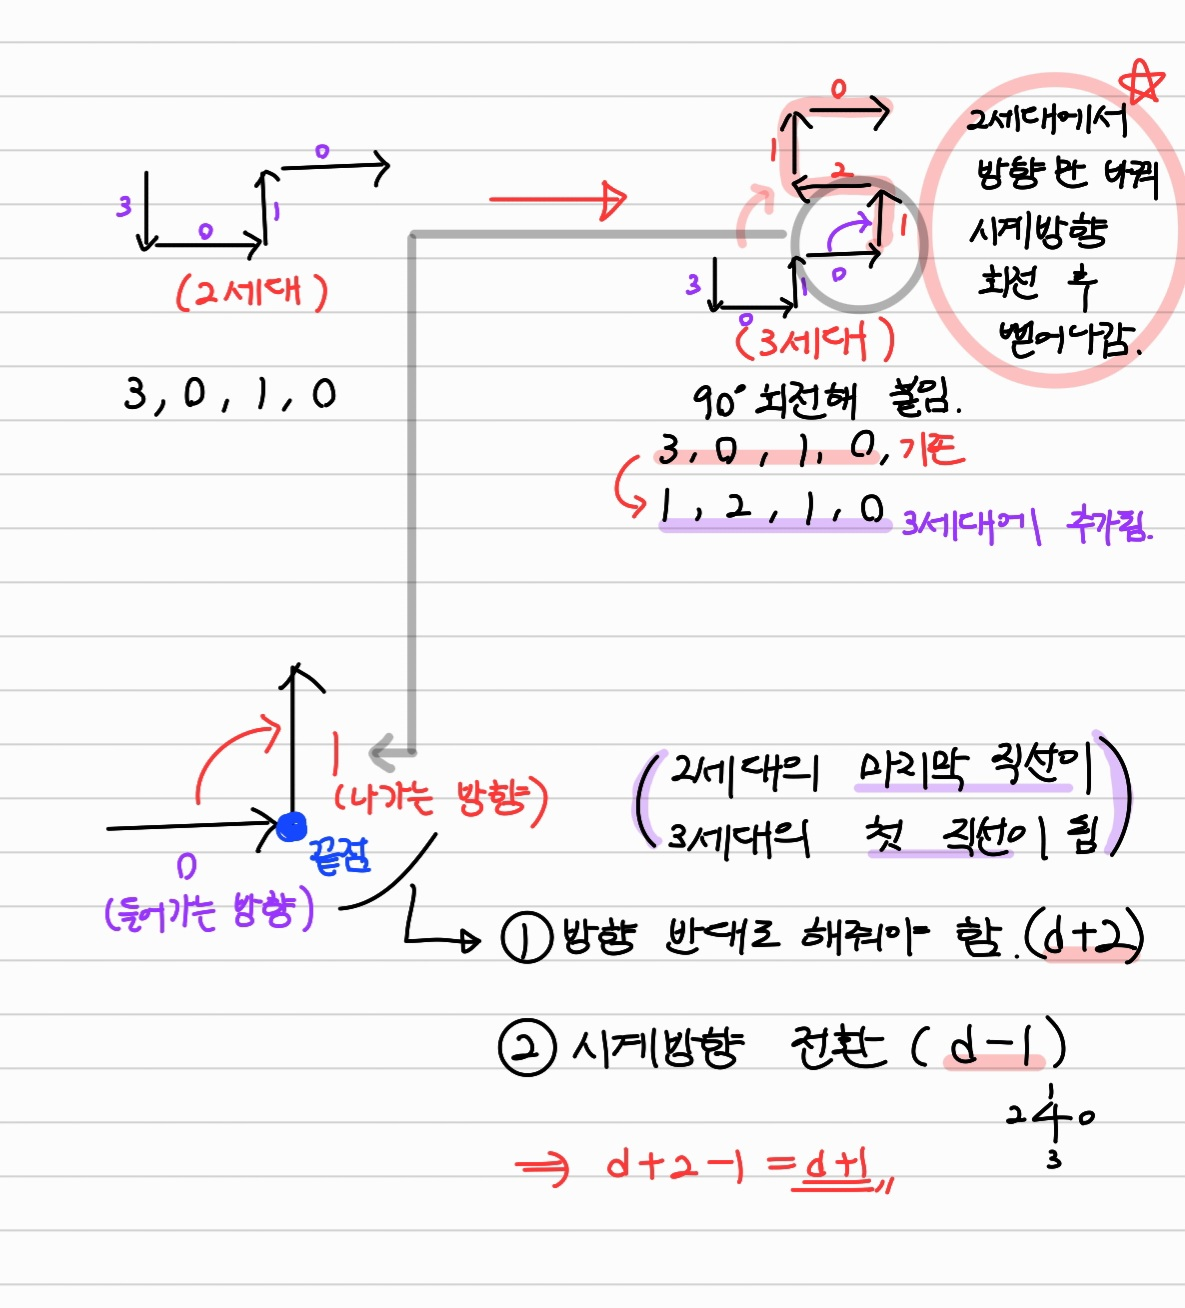 3
0
1
0
(2세대)
3, 0, 1, 0
0
1
2
1
0
3
0
1
(3세대)
2세대에서
방향만 바꿔
시계방향
회전 후
뻗어나감.
90° 회전해 붙임.
3, 0, 1, 0, 기존
1, 2, 1, 0 3세대에 추가됨.
1
(나가는 방향)
끝점
0
(들어가는 방향)
(2세대의 마지막 직선이
3세대의 첫 직선이 됨)
① 방향 반대로 해줘야 함. (d+2)
② 시계방향 전환 (d-1)
1
2 0
3
⇒ d+2-1 = d+1